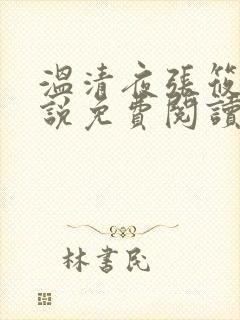 溫清夜張筱
說免費閱讀
林書民